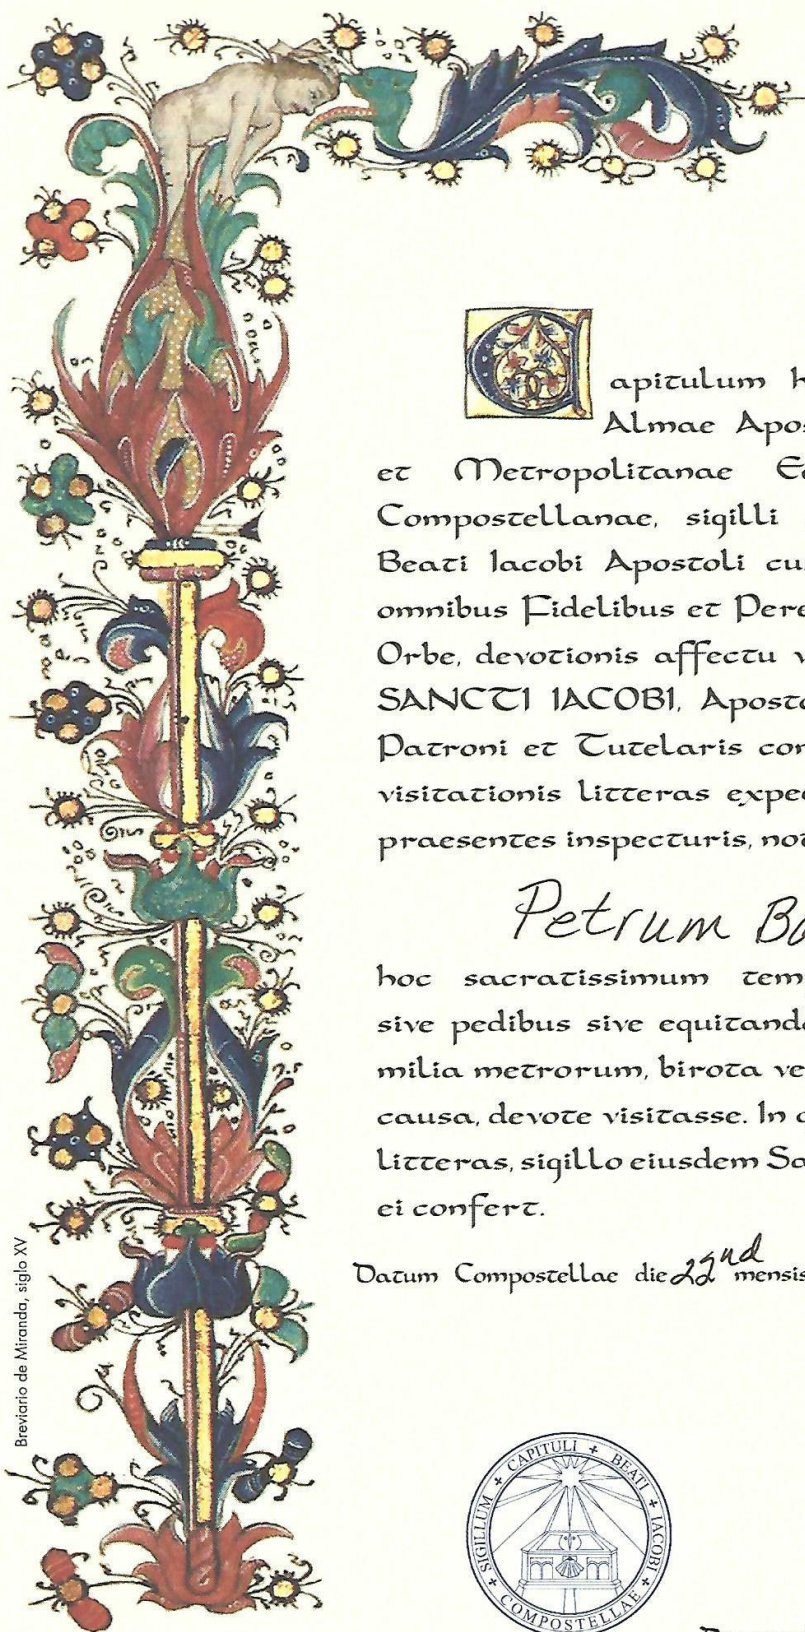 Capitulum h
Almae Apos
et Metropolitanae Ec
Compostellanae, sigilli
Beati Iacobi Apostoli cu
omnibus Fidelibus et Pere
Orbe, devotionis affectu v
SANCTI IACOBI, Aposto
Patroni et Tutelaris con
visitationis litteras exped
praesentes inspecturis, not
Petrum Ba
hoc sacratissimum tem
sive pedibus sive equitando
milia metrorum, birota ve
causa, devote visitasse. In
litteras, sigillo eiusdem Sa
ei confert.
Datum Compostellae die 22nd mensis
Breviario de Miranda, siglo XV
+ SIGILLUM + CAPITULI + BEATI + IACOBI + COMPOSTELLAE